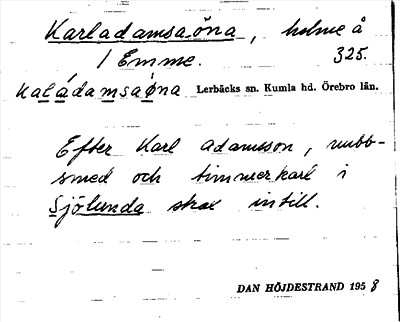 Karladamsaöna, holme å
/ Emme. 325.
kaládamsaöna Lerbäcks sn. Kumla hd. Örebro län.
Efter Karl Adamsson, nubb-
smed och timmerkarl i
Sjölunda strax intill.
DAN HÖJDESTRAND 1958